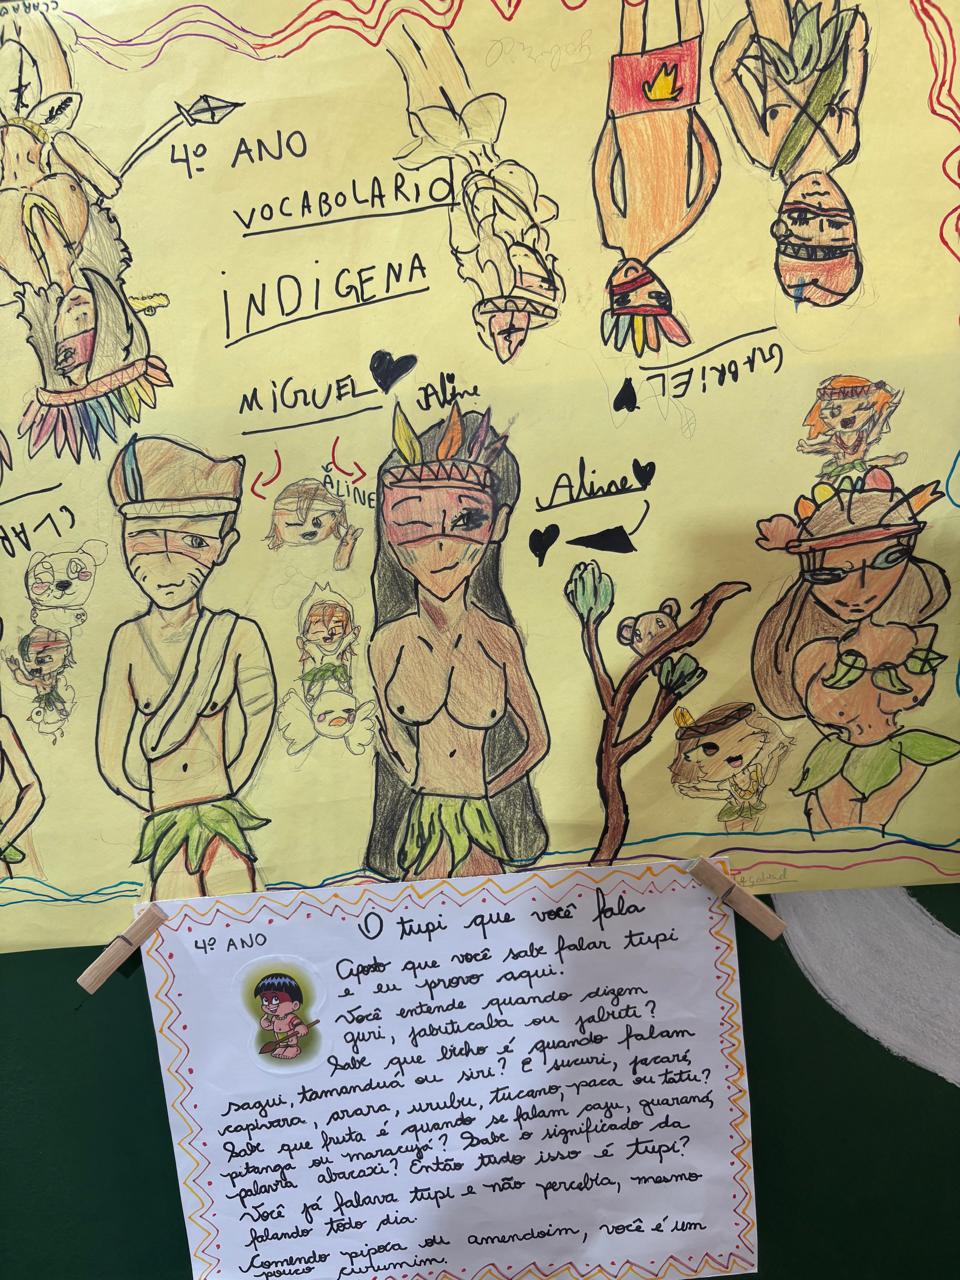 CLARA
4º ANO
VOCABOLARIO
INDIGENA
MIGUEL
Aline
GABRIEL
ALINE
Aline
CLAR
4º ANO
O tupi que você fala
Aposto que você sabe falar tupi
e eu provo aqui.
Você entende quando dizem
guri, jabuticaba ou jabuti?
Sabe que bicho é quando falam
sagui, tamanduá ou siri? E sucuri, jacaré,
capivara, arara, urubu, tucano, paca ou tatu?
Sabe que fruta é quando se falam caju, guaraná,
pitanga ou maracujá? Sabe o significado da
palavra abacaxi? Então tudo isso é tupi?
Você já falava tupi e não percebia, mesmo
falando todo dia.
Comendo pipoca ou amendoim, você é um
pouco curumim.